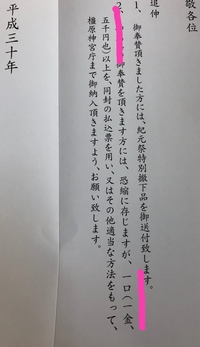 敬各位
追伸
1、御奉賛頂きました方には、紀元祭特別撤下品を御送付致します。
2、御奉賛を頂きます方には、恐縮に存じますが、一口(一金、
五千円也)以上を、同封の払込票を用い、又はその他適当な方法をもって、
橿原神宮庁まで御納入頂きますよう、お願い致します。
平成三十年